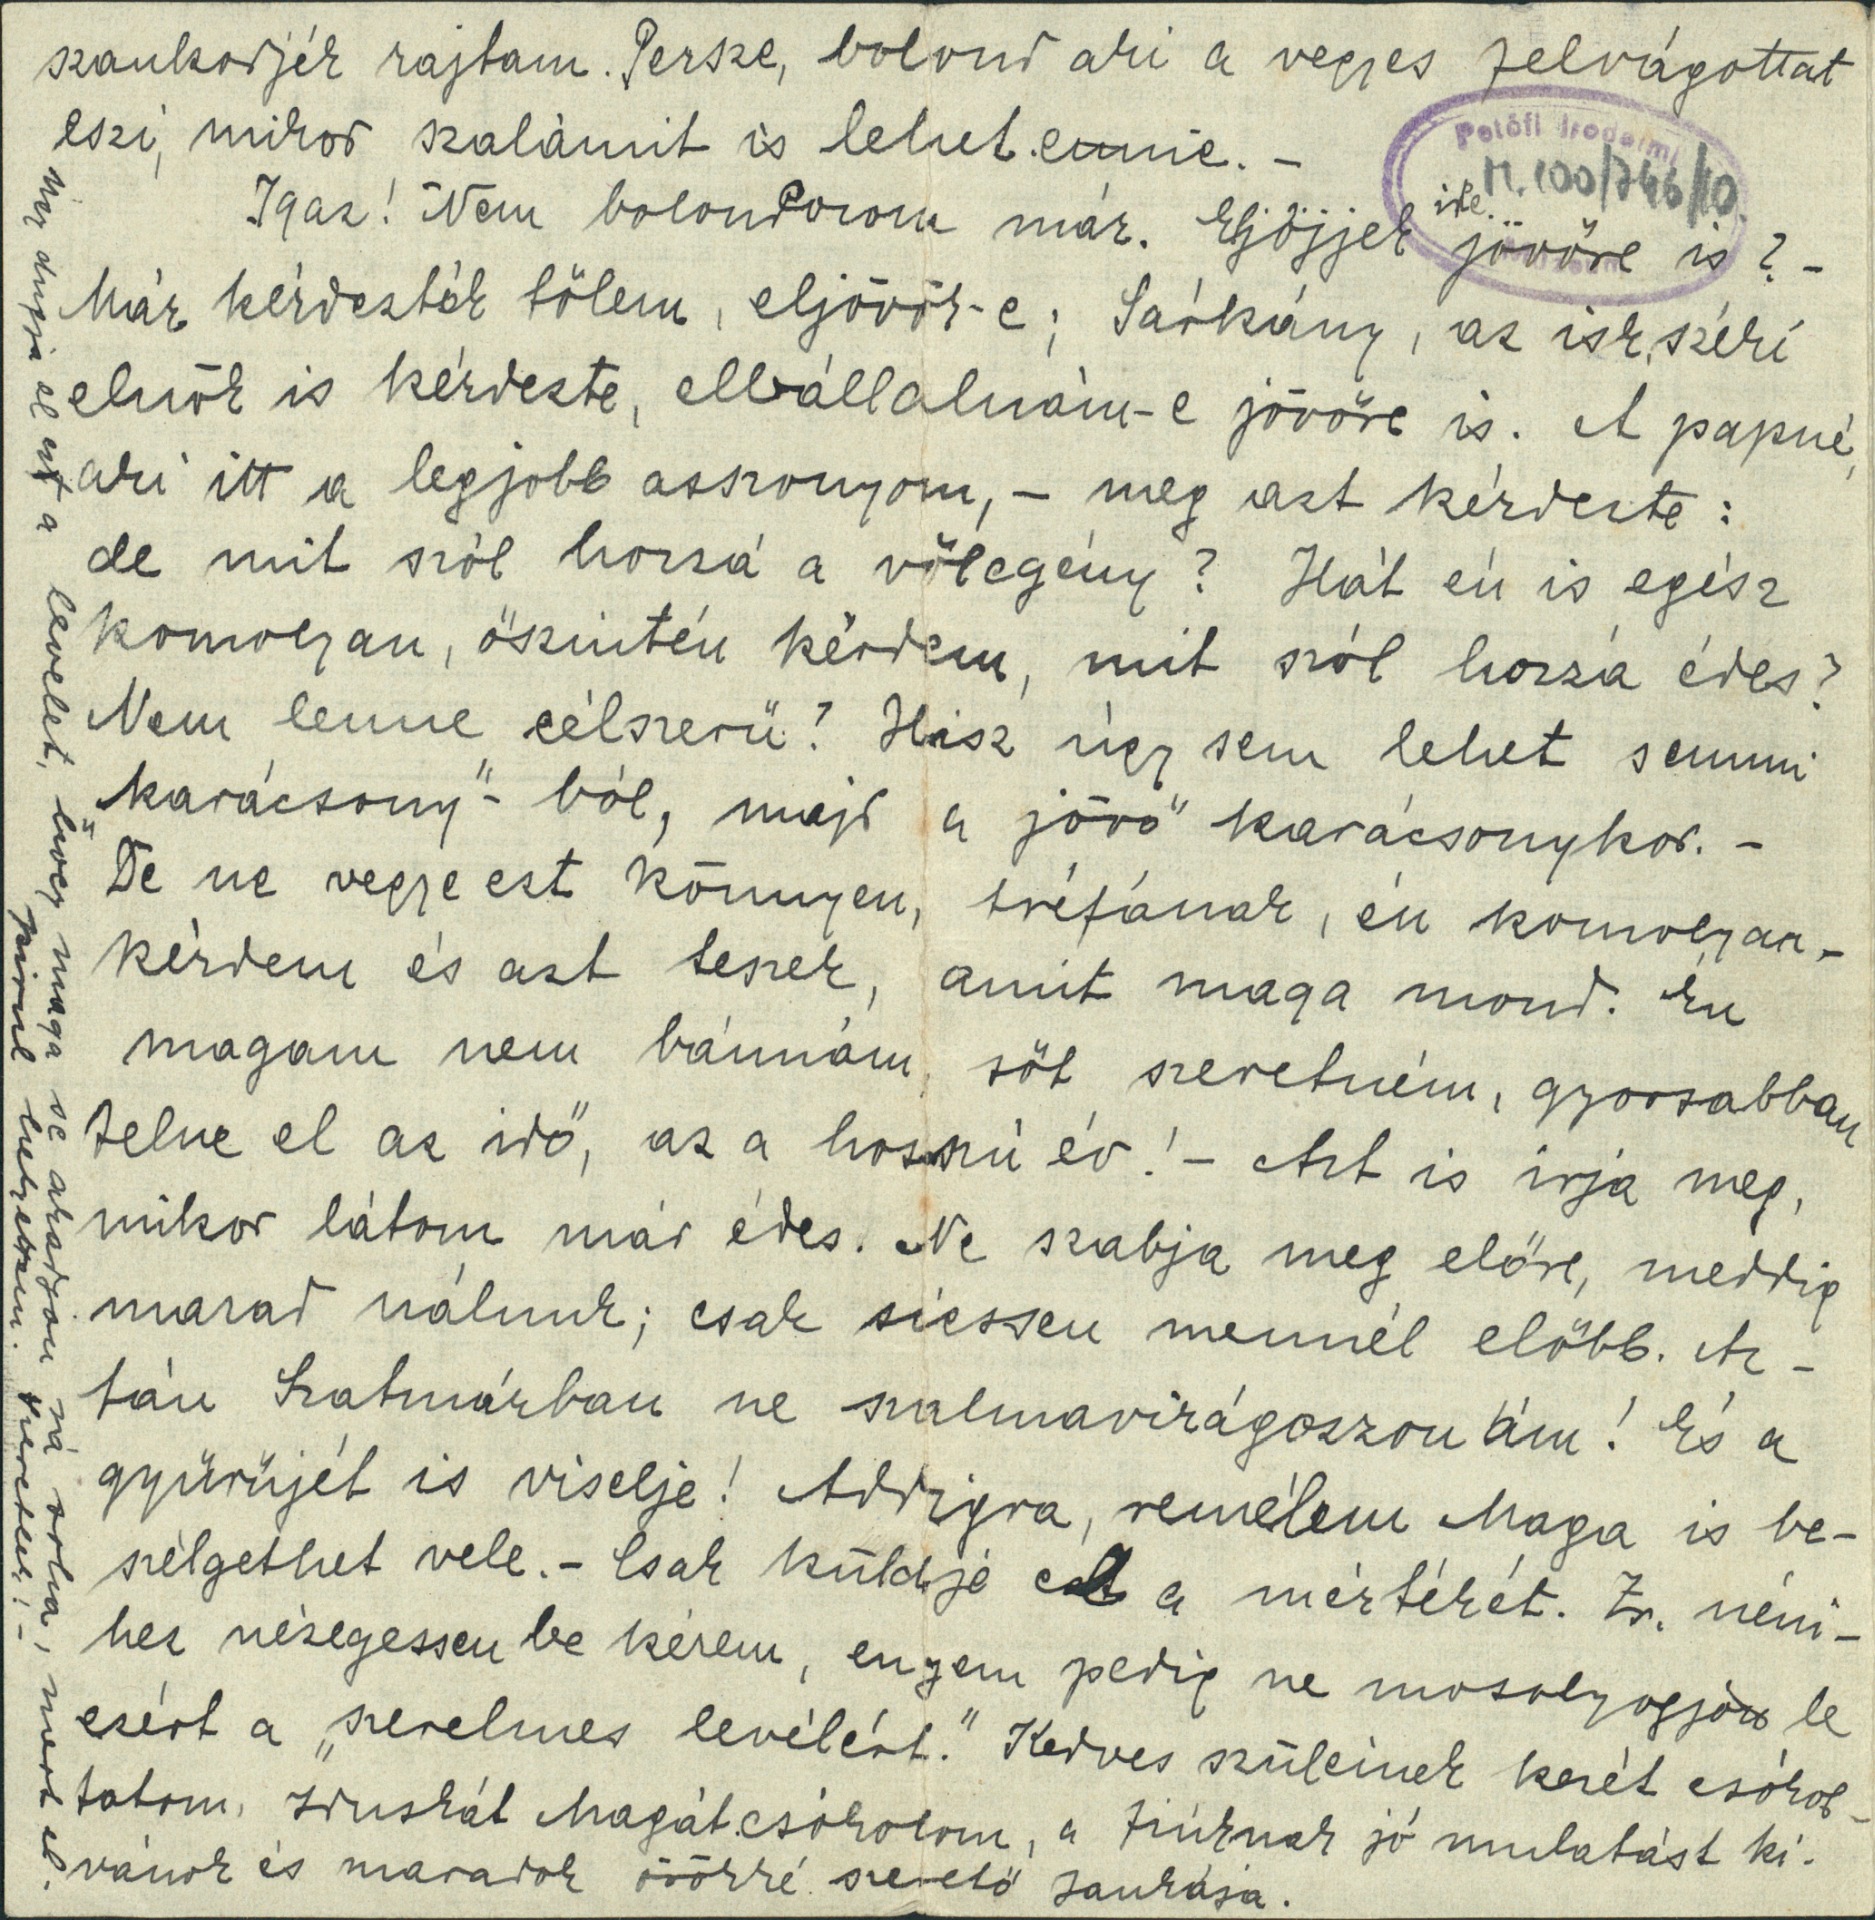 szankodjék rajtam. Persze, bolond aki a vegyes felvágottat
eszi, mikor szalámit is lehet ennie. -
Igaz! Nem bolondozom már. Eljöjjek ide jövőre is? -
Már kérdezték tőlem, eljövök-e; Sárkány, az isk. széki
elnök is kérdezte, elvállalnám-e jövőre is. A papné,
aki itt a legjobb asszonyom, - meg azt kérdezte:
de mit szól hozzá a vőlegény? Hát én is egész
komolyan, őszintén kérdem, mit szól hozzá édes?
Nem lenne célszerű? Hisz úgy sem lehet semmi
„karácsony"-ból, majd a jövő karácsonykor. -
De ne vegye ezt könnyen, tréfának, én komolyan -
kérdem és azt teszek, amit maga mond. Én
magam nem bánnám, sőt szeretném, gyorsabban
telne el az idő, az a hosszú év! - Azt is írja meg,
mikor látom már édes. Ne szabja meg előre, meddig
marad nálunk; csak siessen mennél előbb. Az-
tán Szatmárban ne szalmavirágozzon ám! És a
gyűrűjét is viselje! Addigra, remélem Maga is be-
szélgethet vele. - Csak küldje el a mértékét. Zs. néni-
hez nézegessen be kérem, engem pedig ne mosolyogjon le
ezért a „szerelmes levélért." Kedves szüleinek kezét csókol-
tatom, Iduskát Magát csókolom, a fiúknak jó mulatást kí-
vánok és maradok örökké szerető Jankája.
Úgy dugja el ezt a levelet, hogy maga se akadjon rá soha, mert el-
pirul helyettem. Szeretem! -
Petőfi Irodalmi
M. 100/746/10.